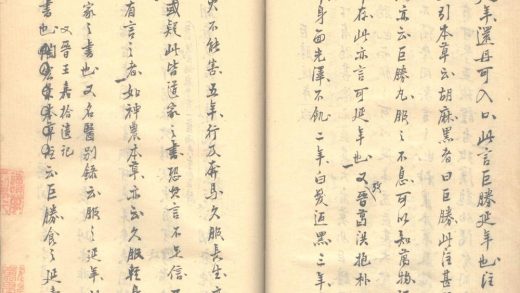 延年還丹可入口此言巨勝延年也注
引本草云胡麻黑者曰巨勝此注甚
亦云巨勝丸服之不息可以知萬物
存此亦言可延年也又晉葛洪抱朴
身面光澤不飢二年白髮返黑三年
火不能害五年行及奔馬久服長生
或疑此皆道家之書恐其言不足信
有言之者如神農本草亦云久服輕
家之書也又名醫別錄云服之延年
又晉王嘉拾遺記
書也 本草注云巨勝食之延年